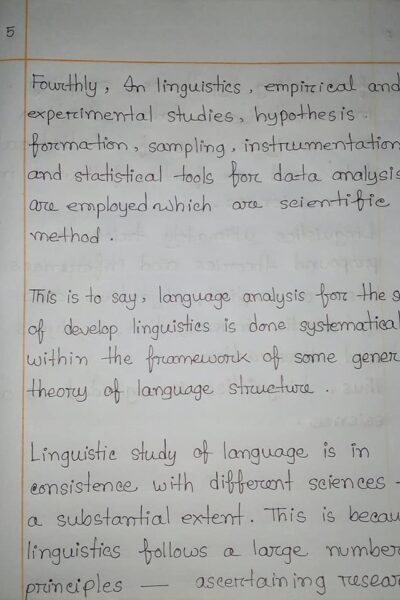 5
Fourthly, In linguistics, empirical and
experimental studies, hypothesis
formation, sampling, instrumentation
and statistical tools for data analysis
are employed which are scientific
method.
This is to say, language analysis for the
of develop linguistics is done systematical
within the framework of some gener
theory of language structure.
Linguistic study of language is in
consistence with different sciences
a substantial extent. This is becau
linguistics follows a large number
principles — ascertaining resear